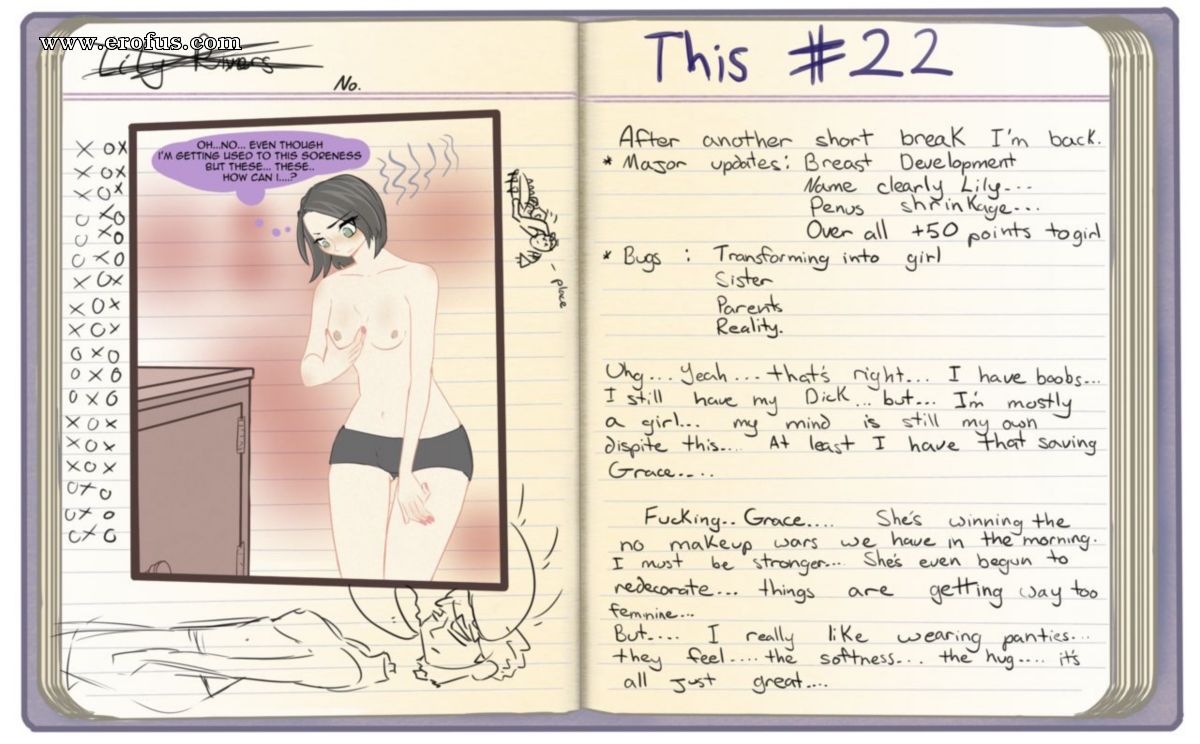 www.erofus.com
Lily Rivers
No.
OH...NO... EVEN THOUGH
I'M GETTING USED TO THIS SORENESS
BUT THESE... THESE..
HOW CAN I....?
X O X
X O X
X O X
O X O
O X O
O X O
X O X
X O X
X O X
O X O
O X O
O X O
X O X
X O X
X O X
O X O
O X O
O X O
place
This #22
After another short break I'm back.
* Major updates: Breast Development
Name clearly Lily...
Penus shrinkage...
Over all +50 points to girl
* Bugs : Transforming into girl
Sister
Parents
Reality.
Uhg... Yeah... that's right... I have boobs...
I still have my Dick... but... I'm mostly
a girl... my mind is still my own
dispite this.... At least I have that saving
Grace.....
Fucking.. Grace.... She's winning the
no makeup wars we have in the morning.
I must be stronger... She's even begun to
redecorate... things are getting way too
feminine...
But.... I really like wearing panties...
they feel.... the softness... the hug.... it's
all just great....